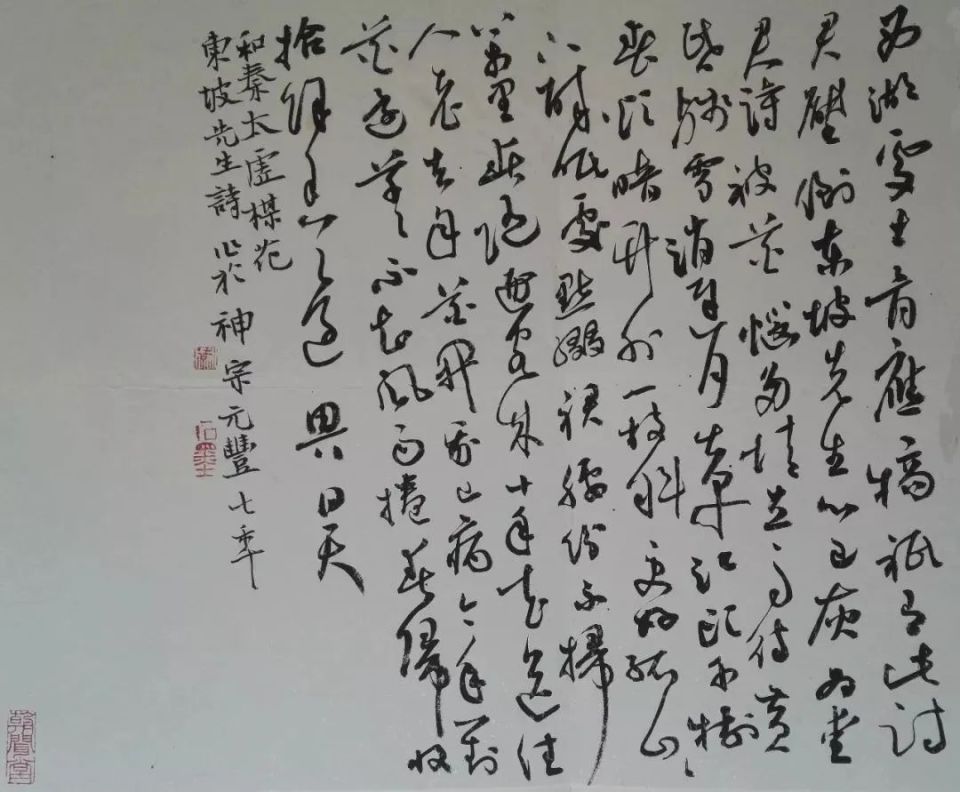 西湖處士骨應槁祇有此詩
君壓倒東坡先生心已灰為愛
君詩被花惱多情立馬待黃
昏殘雪消遲月出早江頭千樹
春欲暗竹外一枝斜更好孤山
下醉眠處點綴裙腰紛不掃
萬里春隨逐客來十年花送佳
人老去年花開我已病今年對
花還草々不知風雨捲春歸收
拾餘香還畀昊
和秦太虛楳花
東坡先生詩作於神宗元豐七年